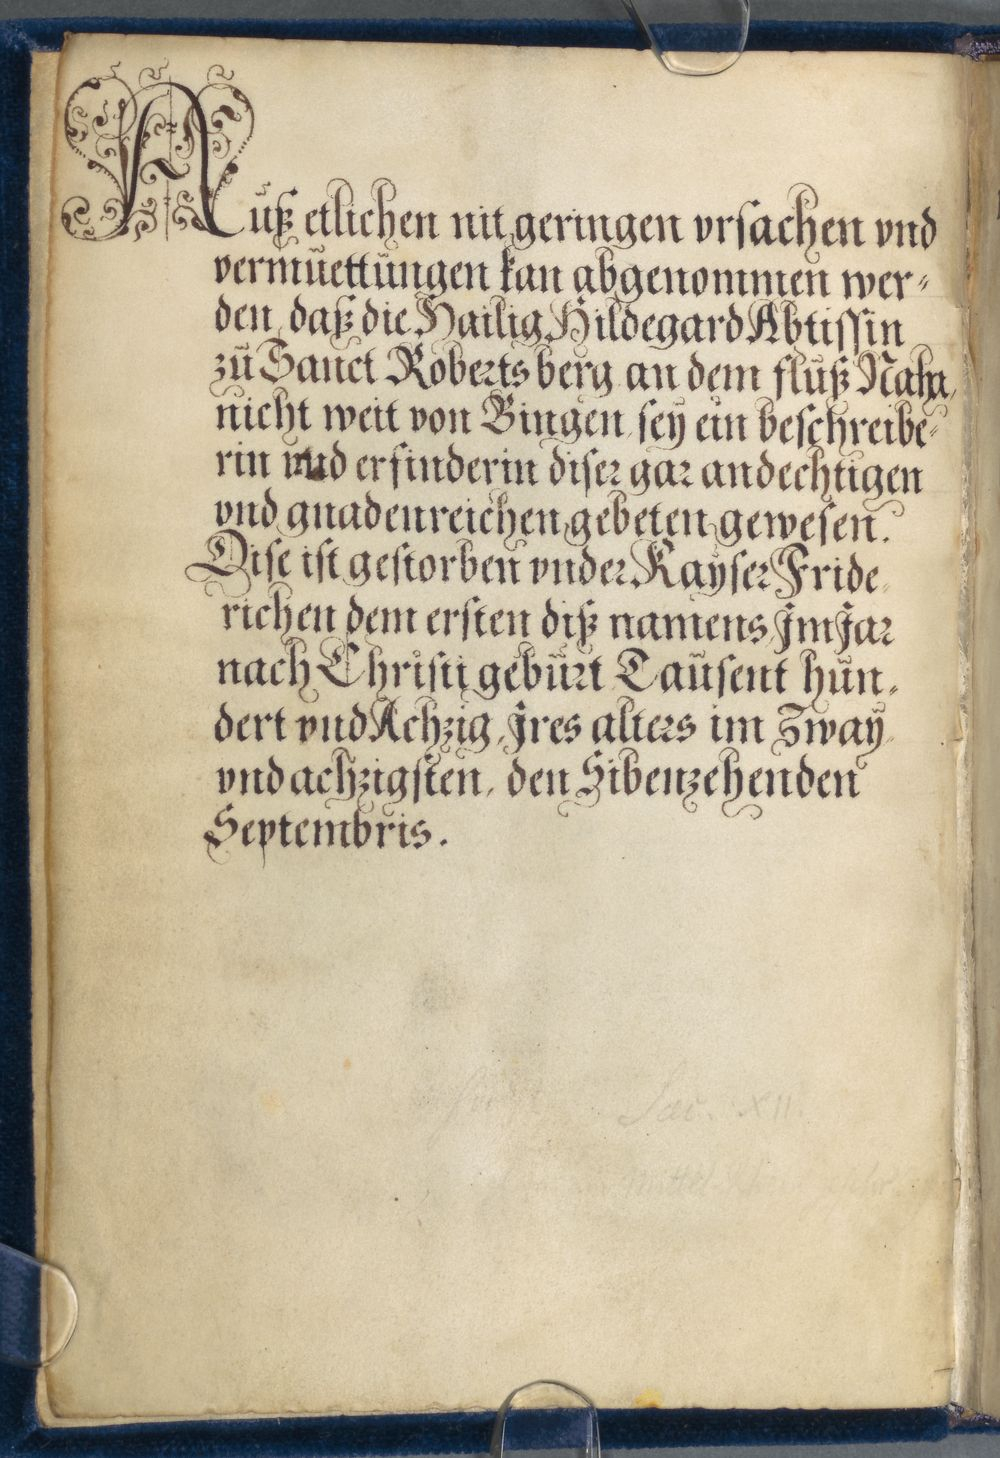 Auß etlichen nit geringen vrsachen vnd
vermuettungen kan abgenommen wer⸗
den, daß die Hailig Hildegard Abtissin
zu Sanct Robertsberg an dem fluß Naha,
nicht weit von Bingen, sey ein beschreibe⸗
rin vnd erfinderin diser gar andechtigen
vnd gnadenreichen gebeten gewesen.
Dise ist gestorben vnder Kayser Fride⸗
richen dem ersten diß namens, Im Jar
nach Christi geburt Tausent hun⸗
dert vnd Achzig, Jres alters im Zway
vnd achzigsten, den Sibenzehenden
Septembris.
Saec. XII.